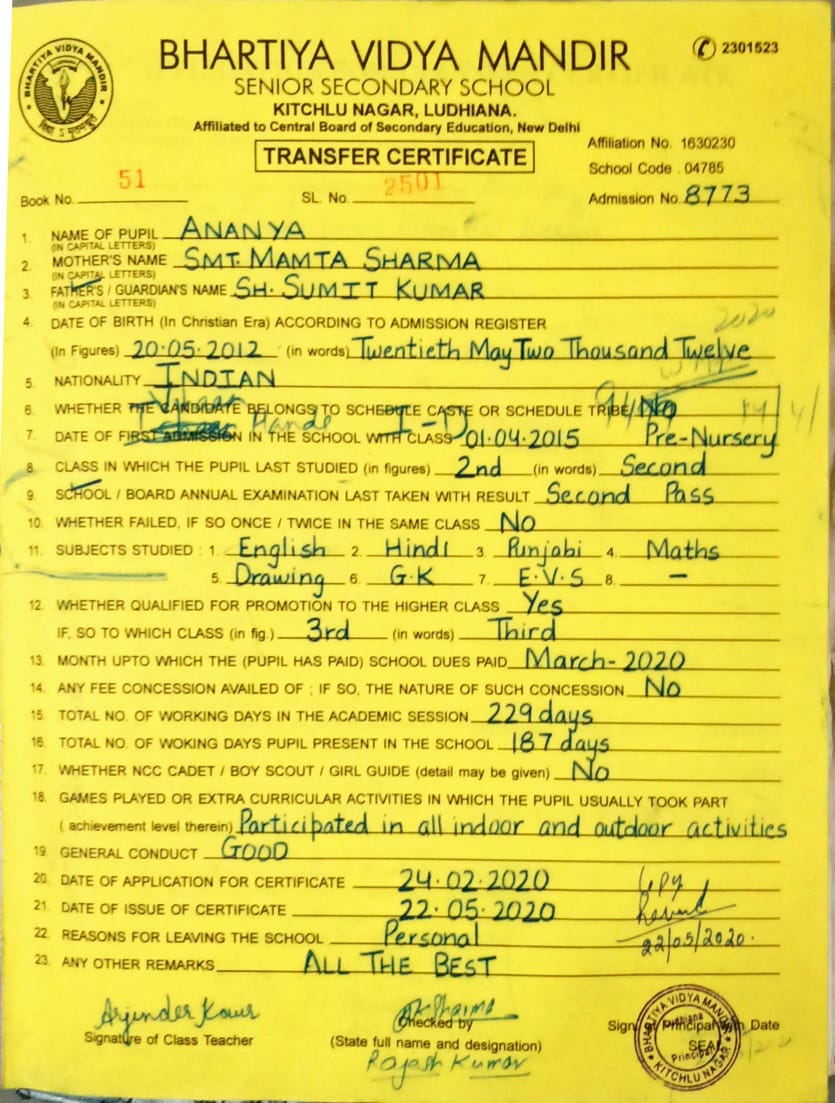 BHARTIYA VIDYA MANDIR
2301523
SENIOR SECONDARY SCHOOL
KITCHLU NAGAR, LUDHIANA.
Affiliated to Central Board of Secondary Education, New Delhi
Affiliation No. 1630230
TRANSFER CERTIFICATE
School Code 04785
Book No. 51 SL. No. 2501 Admission No. 8773
1. NAME OF PUPIL ANANYA
(IN CAPITAL LETTERS)
2. MOTHER'S NAME SMT. MAMTA SHARMA
(IN CAPITAL LETTERS)
3. FATHER'S / GUARDIAN'S NAME SH. SUMIT KUMAR
(IN CAPITAL LETTERS)
4. DATE OF BIRTH (In Christian Era) ACCORDING TO ADMISSION REGISTER
2020
(In Figures) 20.05.2012 (in words) Twentieth May Two Thousand Twelve
5. NATIONALITY INDIAN
6. WHETHER THE CANDIDATE BELONGS TO SCHEDULE CASTE OR SCHEDULE TRIBE No
7. DATE OF FIRST ADMISSION IN THE SCHOOL WITH CLASS 01.04.2015 Pre-Nursery
8. CLASS IN WHICH THE PUPIL LAST STUDIED (in figures) 2nd (in words) Second
9. SCHOOL / BOARD ANNUAL EXAMINATION LAST TAKEN WITH RESULT Second Pass
10. WHETHER FAILED, IF SO ONCE / TWICE IN THE SAME CLASS NO
11. SUBJECTS STUDIED : 1. English 2. Hindi 3. Punjabi 4. Maths
5. Drawing 6. G.K 7. E.V.S 8. –
12. WHETHER QUALIFIED FOR PROMOTION TO THE HIGHER CLASS Yes
IF, SO TO WHICH CLASS (in fig.) 3rd (in words) Third
13. MONTH UPTO WHICH THE (PUPIL HAS PAID) SCHOOL DUES PAID March-2020
14. ANY FEE CONCESSION AVAILED OF ; IF SO, THE NATURE OF SUCH CONCESSION No
15. TOTAL NO. OF WORKING DAYS IN THE ACADEMIC SESSION 229 days
16. TOTAL NO. OF WOKING DAYS PUPIL PRESENT IN THE SCHOOL 187 days
17. WHETHER NCC CADET / BOY SCOUT / GIRL GUIDE (detail may be given) No
18. GAMES PLAYED OR EXTRA CURRICULAR ACTIVITIES IN WHICH THE PUPIL USUALLY TOOK PART
( achievement level therein) Participated in all indoor and outdoor activities
19. GENERAL CONDUCT GOOD
20. DATE OF APPLICATION FOR CERTIFICATE 24.02.2020
21. DATE OF ISSUE OF CERTIFICATE 22.05.2020
22. REASONS FOR LEAVING THE SCHOOL Personal
22/05/2020.
23. ANY OTHER REMARKS ALL THE BEST
Arjinder Kaur
Signature of Class Teacher
Checked by
(State full name and designation)
Rajesh Kumar
Sign. of Principal with Date
SEAL
BHARTIYA VIDYA MANDIR
Ludhiana
Principal
KITCHLU NAGAR